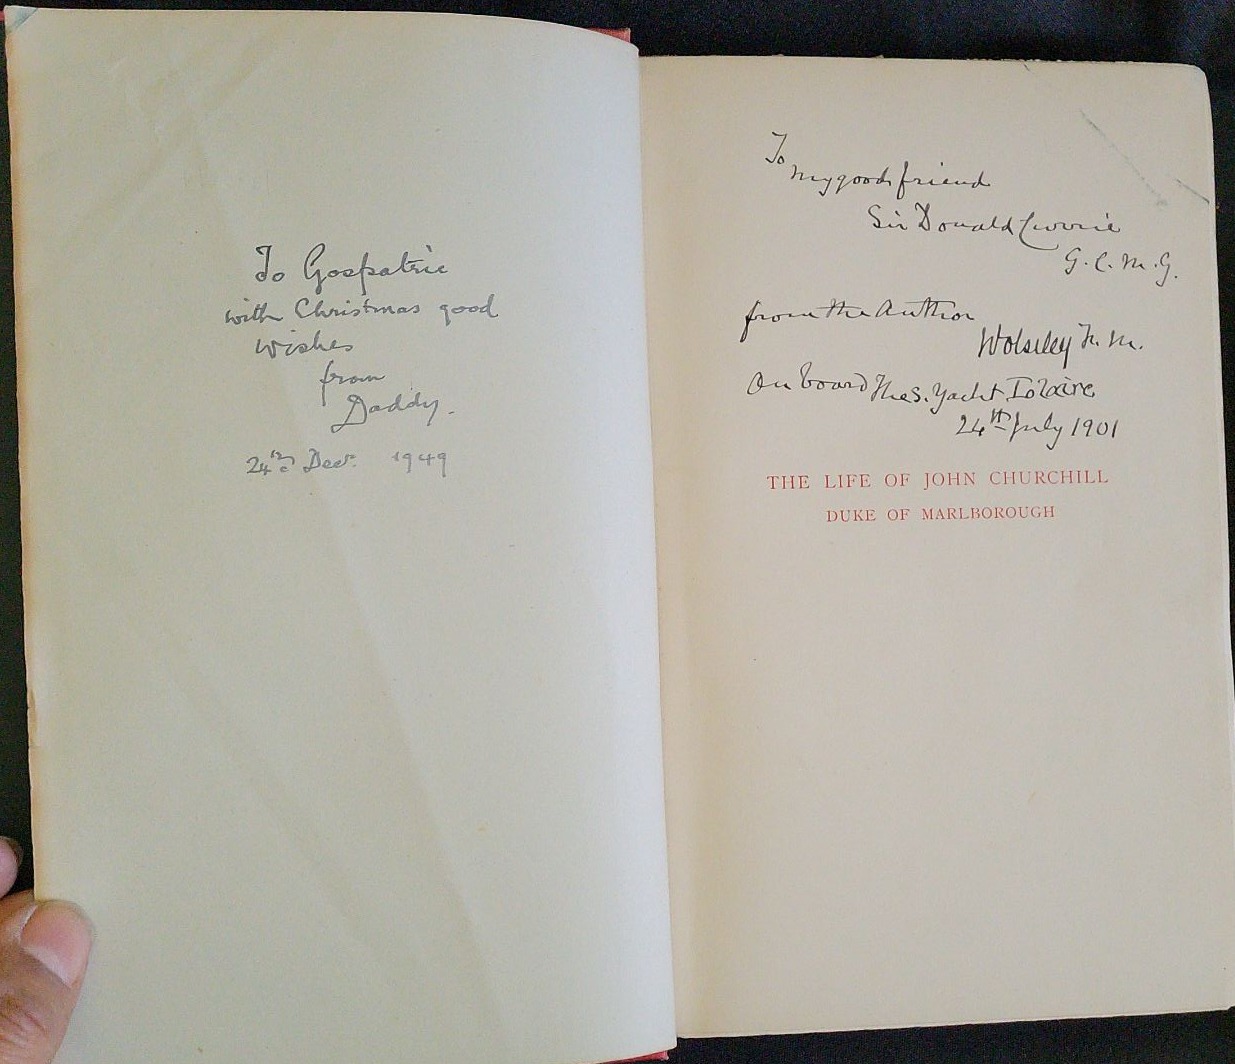 To Gospatric
with Christmas good
wishes
from
Daddy.
24th Decr. 1949
To
my good friend
Sir Donald Currie
G.C.M.G.
from the Author
Wolseley F.M.
On board the S. Yacht Iolaire
24th July 1901
THE LIFE OF JOHN CHURCHILL
DUKE OF MARLBOROUGH